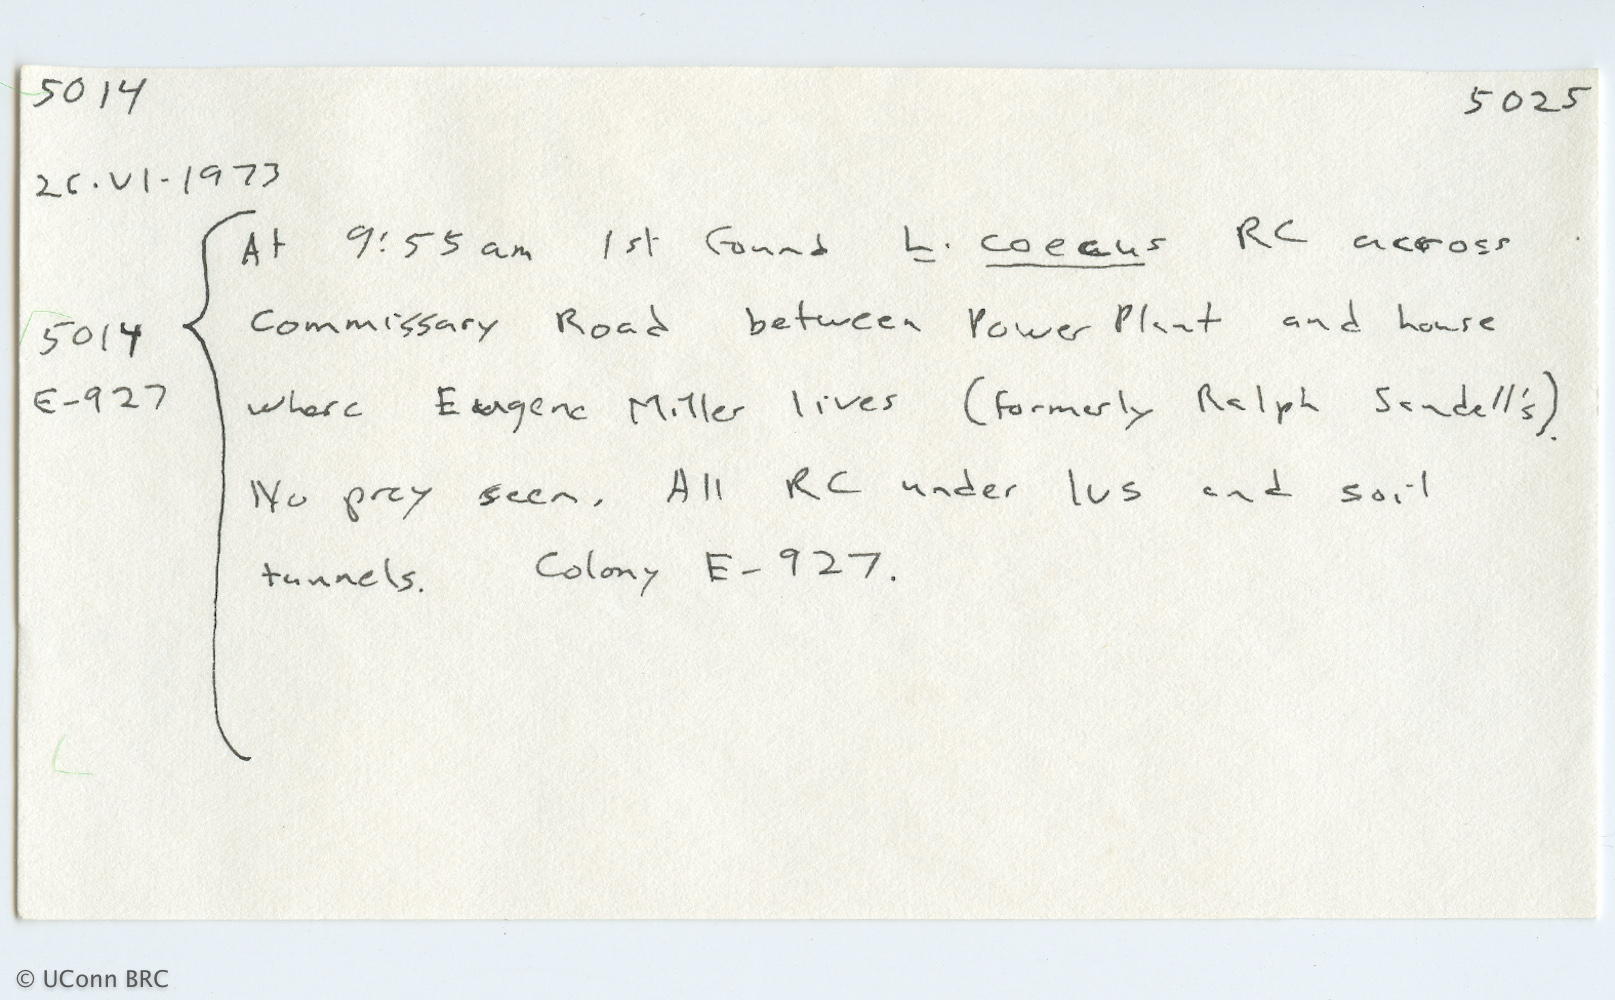 5014 5025
26-VI-1973
At 9:55 am 1st found L. coecus RC across
Commissary Road between Power Plant and house
5014
E-927
where Eugene Miller lives (formerly Ralph Sandell's).
No prey seen. All RC under lvs and soil
tunnels. Colony E-927.
© UConn BRC